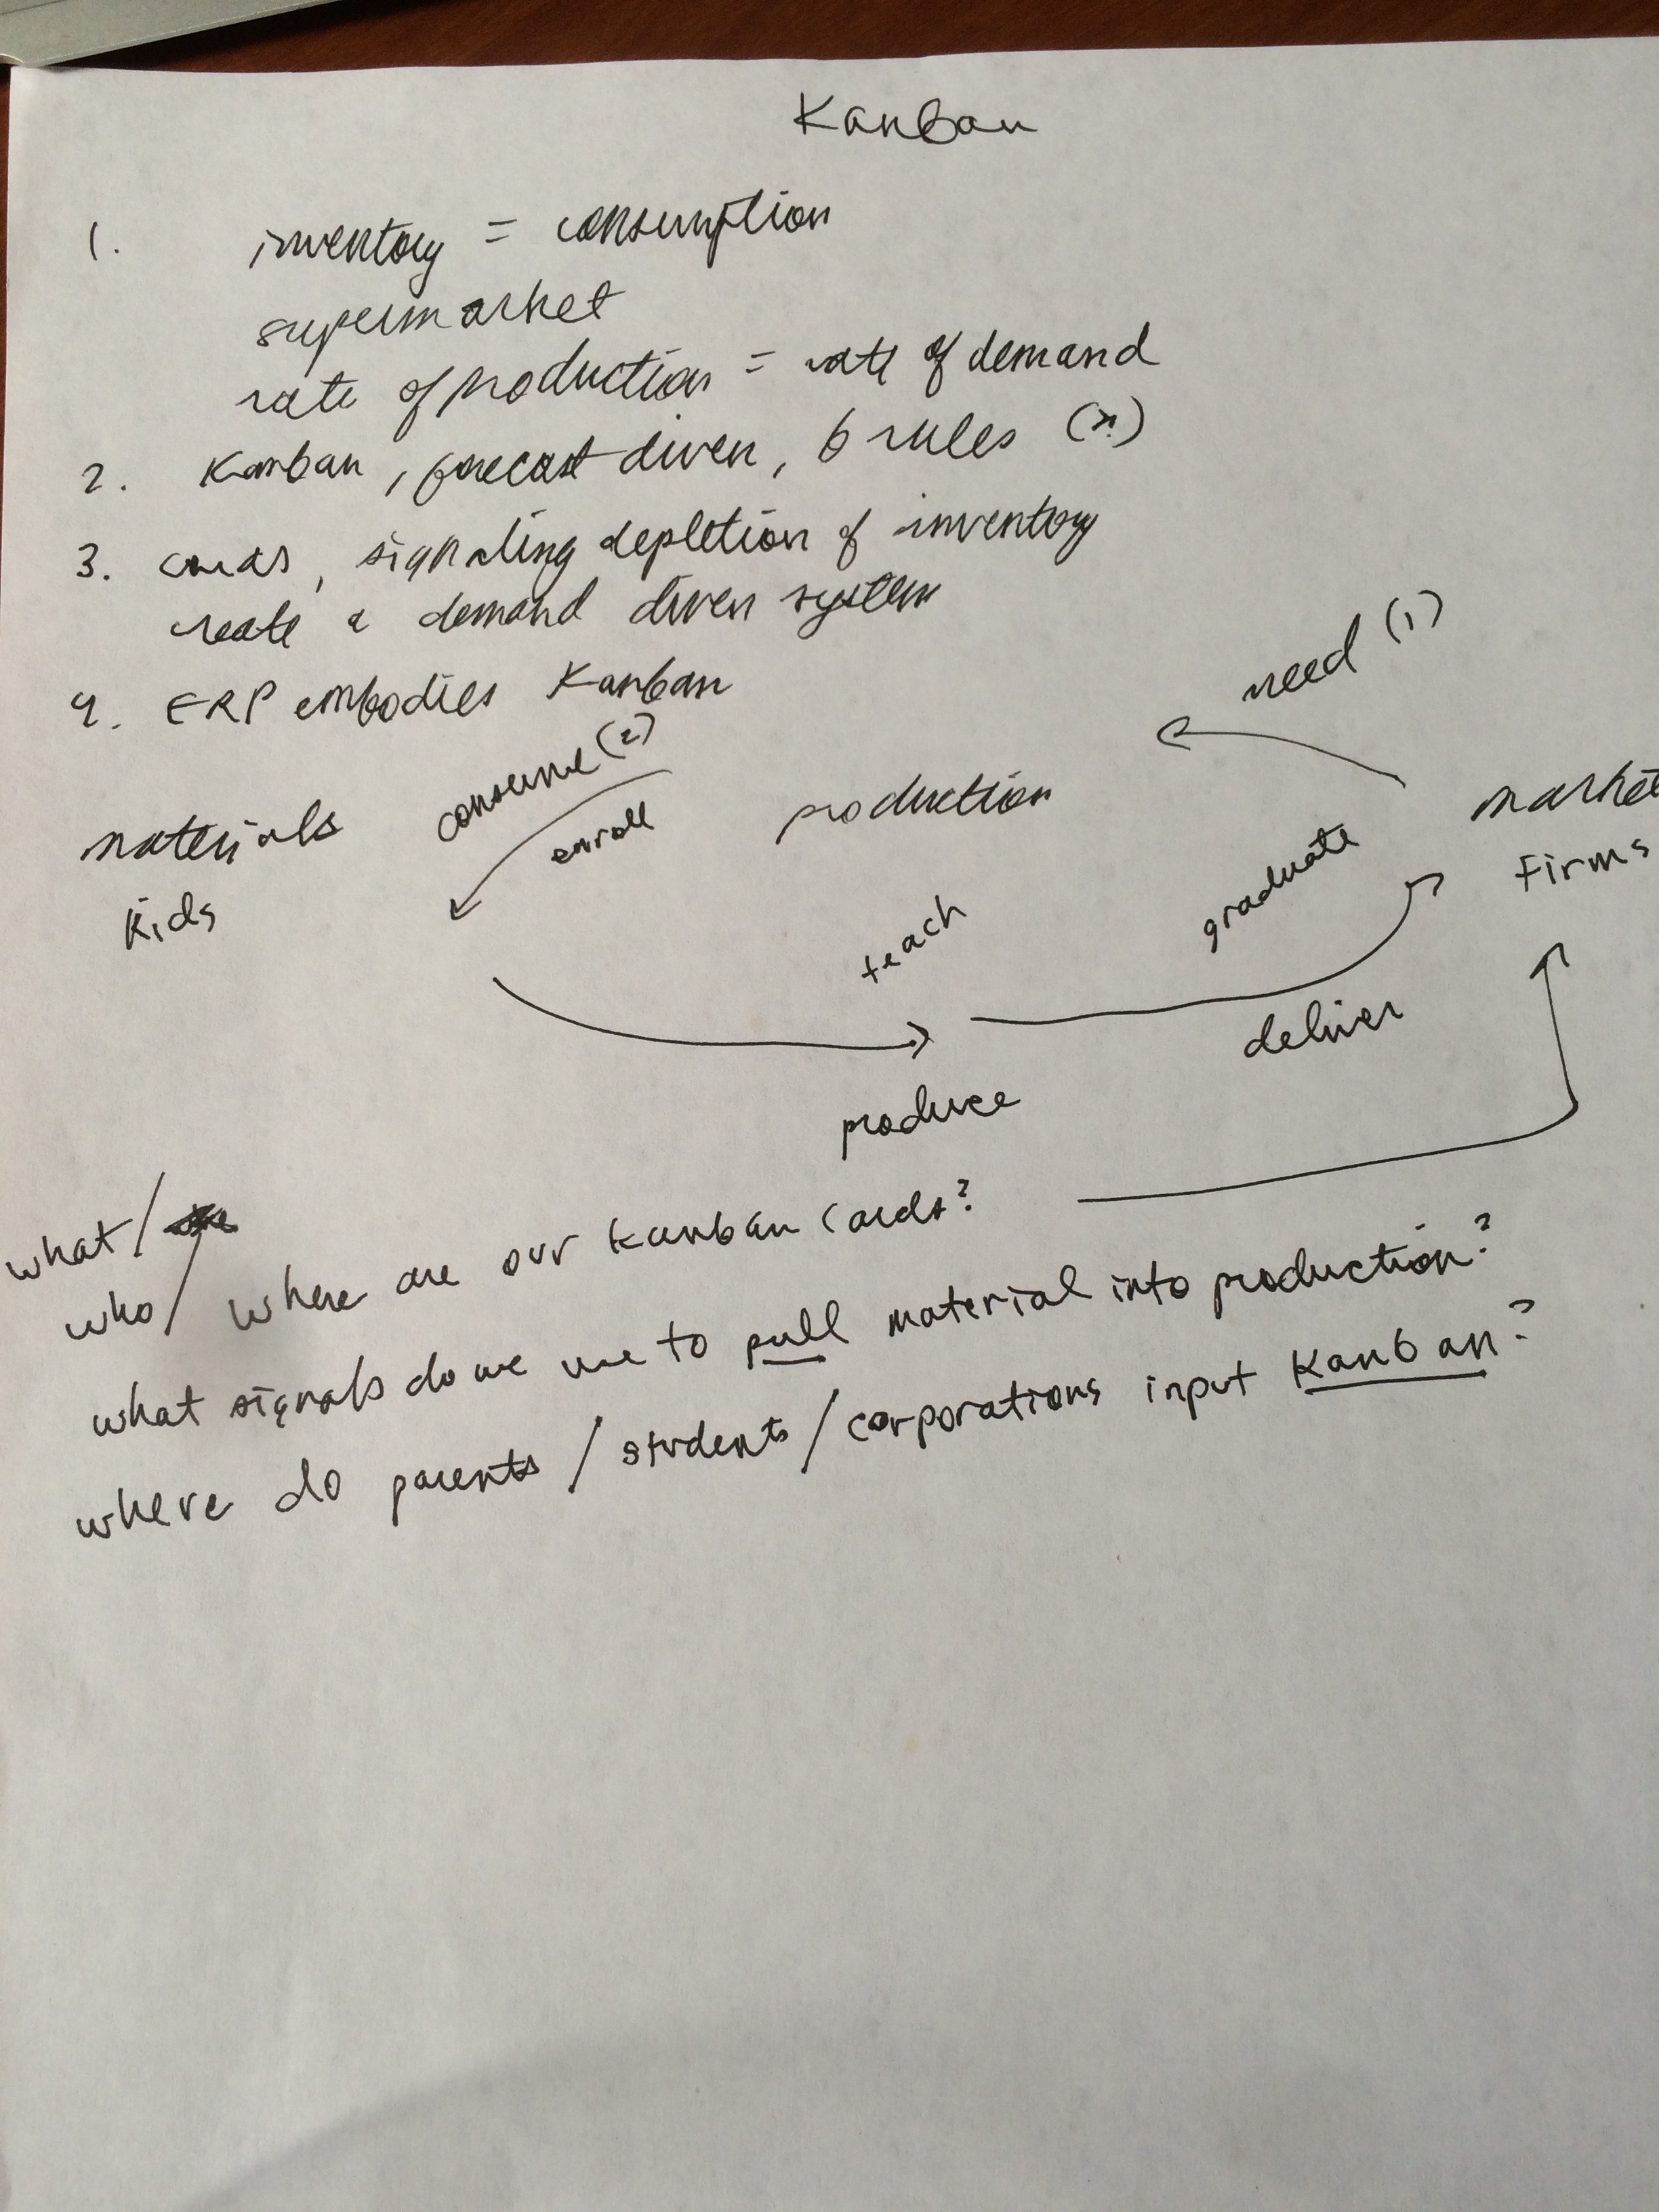 Kanban
1. inventory = consumption
supermarket
rate of production = rate of demand
2. Kanban, forecast driven, 6 rules
3. cards, signaling depletion of inventory
create a demand driven system
4. ERP embodies Kanban
need (1)
consume (2)
enroll
materials
production
market
Kids
Firms
teach
graduate
deliver
produce
what/
who/ where are our kanban cards?
what signals do we use to pull material into production?
where do parents / students / corporations input Kanban?